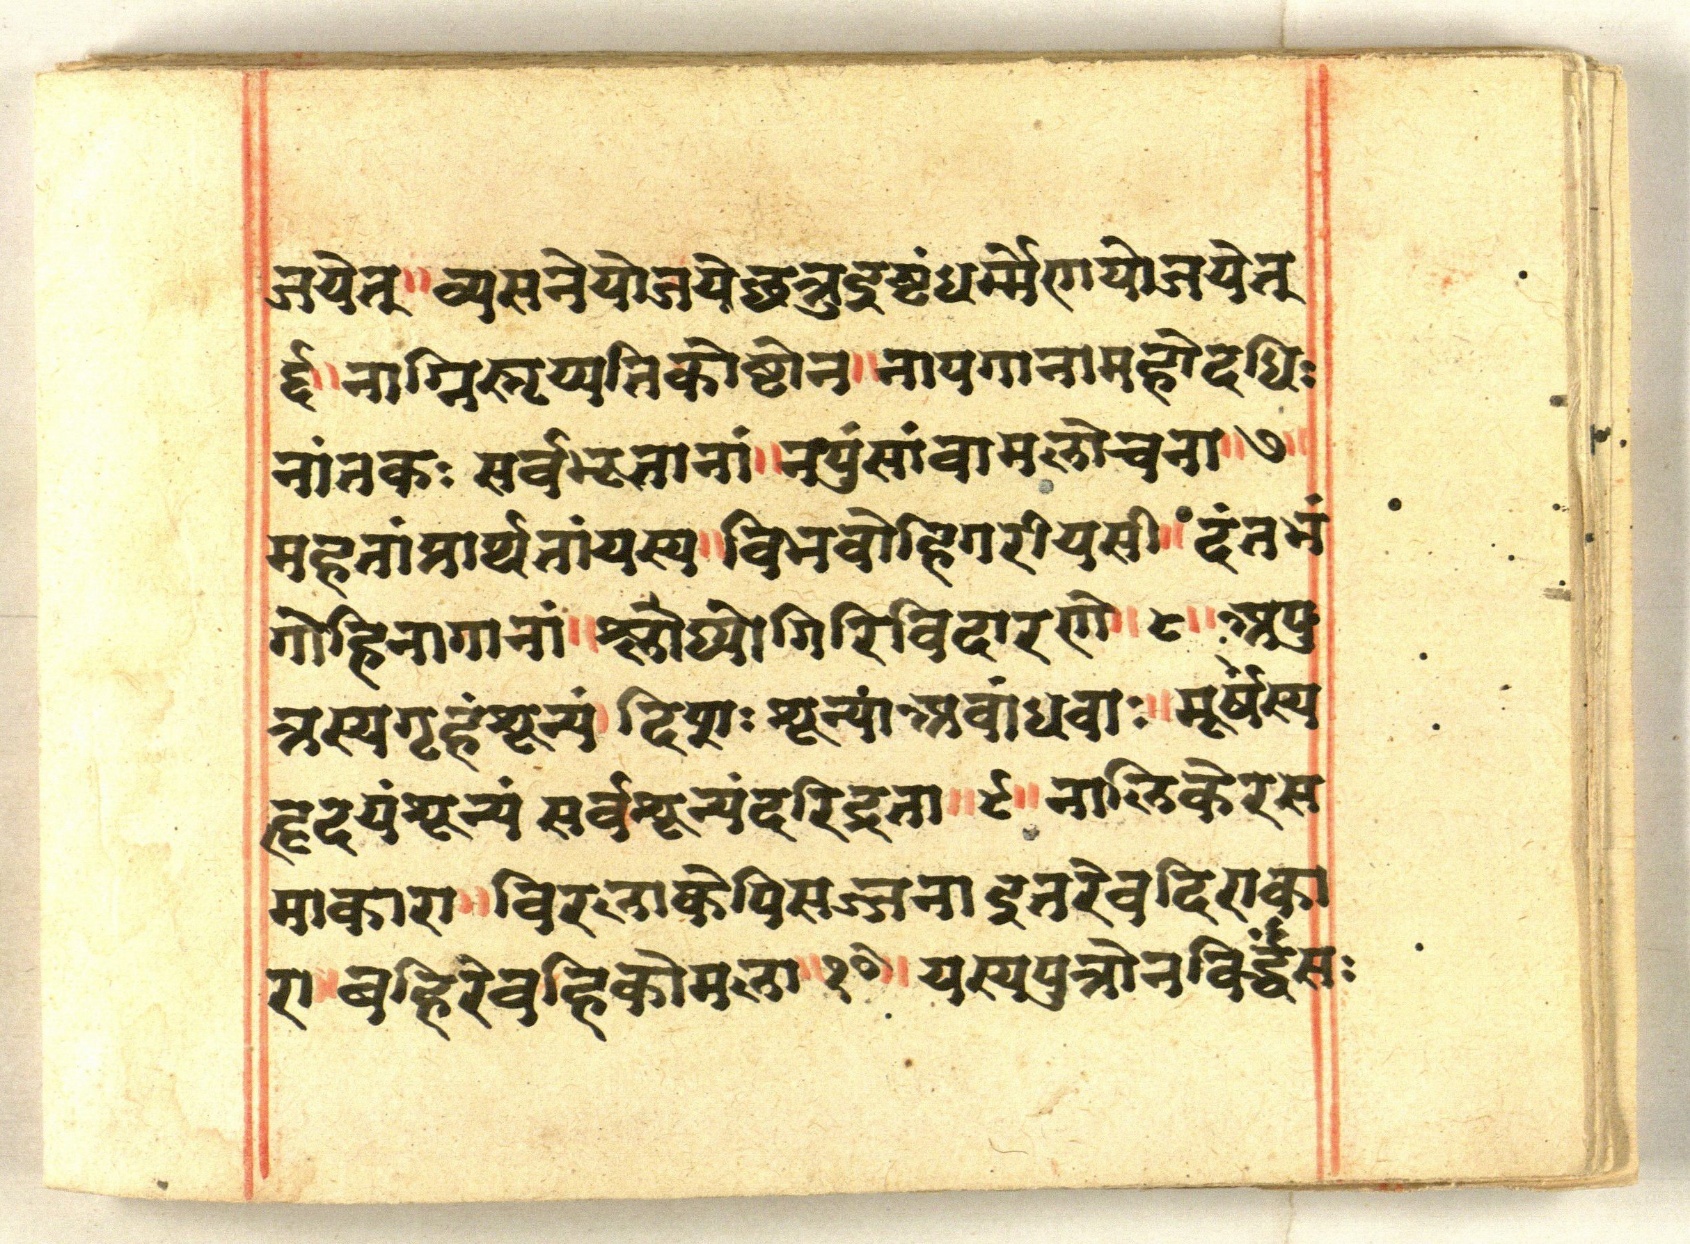 जयेत् ॥ व्यसने योजयेछत्रु इष्टं धर्म्मेण योजयेत्
६ ॥ नाग्निस्तृप्यति कोष्टोन ॥ नापगानामहोदधिः
नांतकः सर्वभूतानां ॥ न पुंसां वामलोचना ॥ ७ ॥
महतां प्रार्थनां यस्य ॥ विभवो हि गरीयसी ॥ दंतभं
गो हि नागानां ॥ श्लाघ्यो गिरिविदारणे ॥ ८ ॥ अपु
त्रस्य गृहं शून्यं दिशः शून्यां अबांधवाः ॥ मूर्षस्य
हृदयं शून्यं सर्वशून्यं दरिद्रता ॥ ९ ॥ नालिकेरस
माकारा ॥ विरलाकेपि सज्जना इतरे वदिराका
रा ॥ बहिरेव हि कोमला ॥ १० ॥ यस्य पुत्रो न विर्द्वंसः